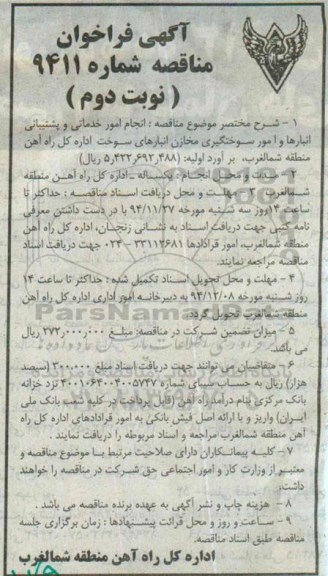 آگهی فراخوان
مناقصه شماره ۹۴۱۱
( نوبت دوم )
۱- شرح مختصر موضوع مناقصه : انجام امور خدماتی و پشتیبانی
انبارها و امور سوختگیری مخازن انبارهای سوخت اداره کل راه آهن
منطقه شمالغرب، بر آورد اولیه: (۵٫۴۲۳٫۶۹۲٫۴۸۸ ریال)
۲- مدت و محل انجام : یکساله - اداره کل راه آهن منطقه
شمالغرب ۳- مهلت و محل دریافت اسناد مناقصه : حداکثر تا
ساعت ۱۴روز سه شنبه مورخه ۹۴/۱۱/۲۷ با در دست داشتن معرفی
نامه کتبی جهت دریافت اسناد به نشانی زنجان، اداره کل راه آهن
منطقه شمالغرب، امور قراردادها ۳۳۱۱۲۶۸۱ -۰۲۴ جهت دریافت اسناد
مناقصه مراجعه نمایند.
۴ - مهلت و محل تحویل اسناد تکمیل شده : حداکثر تا ساعت ۱۴
روز شنبه مورخه ۹۴/۱۲/۰۸ به دبیرخانه امور اداری اداره کل راه آهن
منطقه شمالغرب تحویل گردد.
۵ - میزان تضمین شرکت در مناقصه: مبلغ ۲۷۲٫۰۰۰٫۰۰۰ ریال
می باشد.
۶ - متقاضیان می توانند جهت دریافت اسناد مبلغ ۳۰۰٫۰۰۰ (سیصد
هزار) ریال به حساب شبای شماره نزد خزانه
بانک مرکزی بنام درآمد راه آهن (قابل پرداخت در کلیه شعب بانک ملی
ایران) واریز و با ارائه اصل فیش بانکی به امور قراردادهای اداره کل راه
آهن منطقه شمالغرب مراجعه و اسناد مربوطه را دریافت نمایند .
۷ - کلیه پیمانکاران دارای صلاحیت مرتبط با موضوع مناقصه و
معتبر از وزارت کار و امور اجتماعی حق شرکت در مناقصه را خواهند
داشت.
۸ - هزینه چاپ و نشر آگهی به عهده برنده مناقصه می باشد .
۹ - ساعت و روز و محل قرائت پیشنهادها : زمان برگزاری جلسه
مناقصه طبق اسناد مناقصه.
اداره کل راه آهن منطقه شمالغرب